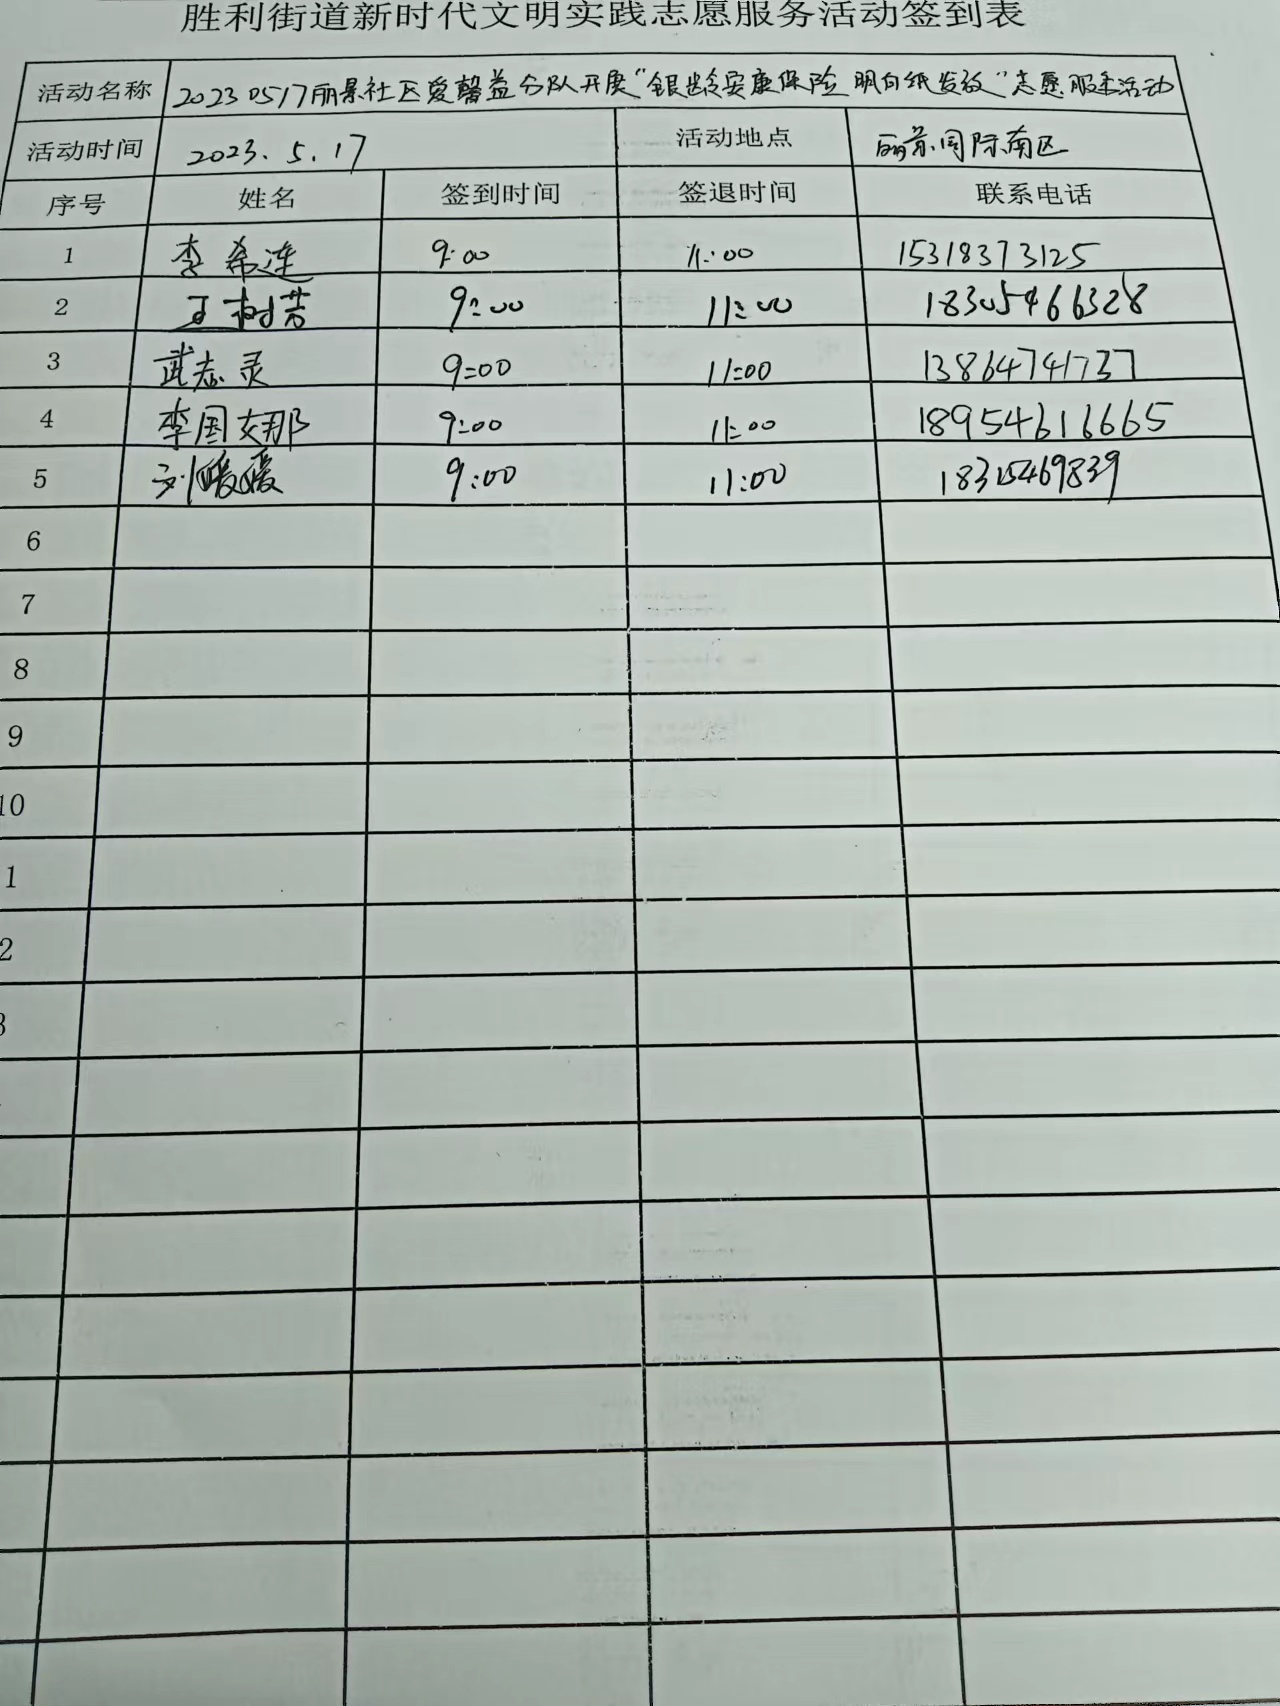 胜利街道新时代文明实践志愿服务活动签到表
活动名称 20230517丽景社区爱馨益分队开展“银龄安康保险明白纸发放”志愿服务活动
活动时间 2023.5.17 活动地点 丽景国际南区
序号 姓名 签到时间 签退时间 联系电话
1 李希连 9:00 11:00 15318373125
2 王树芳 9:00 11:00 18305466328
3 武志灵 9:00 11:00 13864741737
4 李国娜 9:00 11:00 18954616665
5 刘媛媛 9:00 11:00
6
7
8
9
10
1
2
3